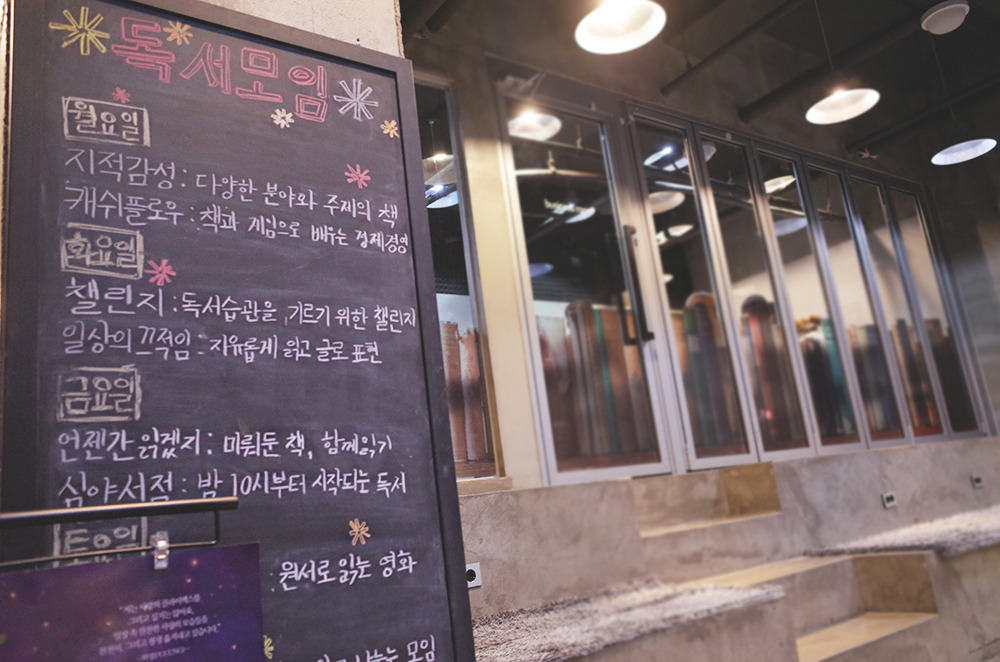 독서모임
월요일
지적감성 : 다양한 분야와 주제의 책
캐쉬플로우 : 책과 게임으로 배우는 경제경영
화요일
챌린지 : 독서습관을 기르기 위한 챌린지
일상의 끄적임 : 자유롭게 읽고 글로 표현
금요일
언젠간 읽겠지 : 미뤄둔 책, 함께읽기
심야서점 : 밤 10시부터 시작되는 독서
토요일
: 원서로 읽는 영화
나누는 모임